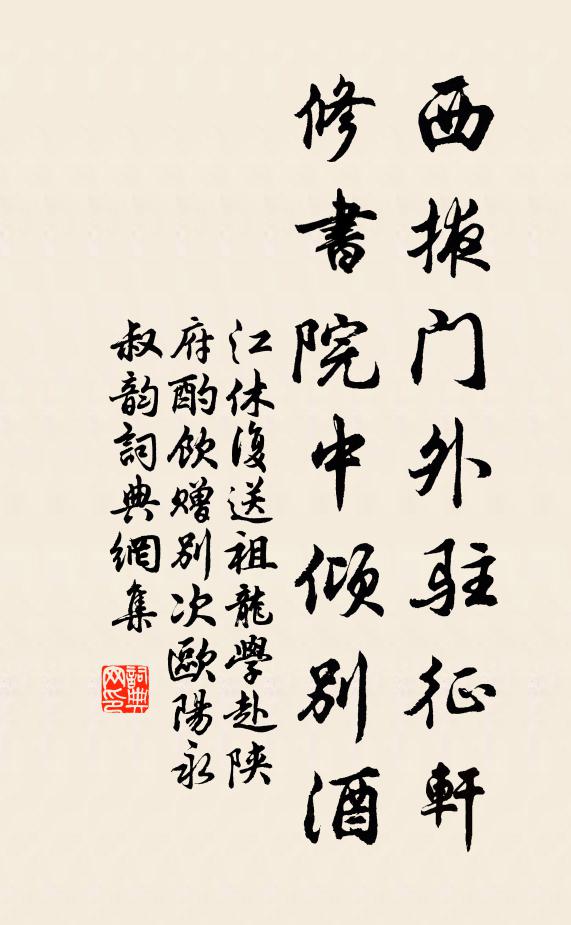 西掖门外驻征軒
修書院中倾别酒
江休復送祖龍學赴陕
府酌饮赠别次歐陽永
叔韵詞典網集
詞典
网印